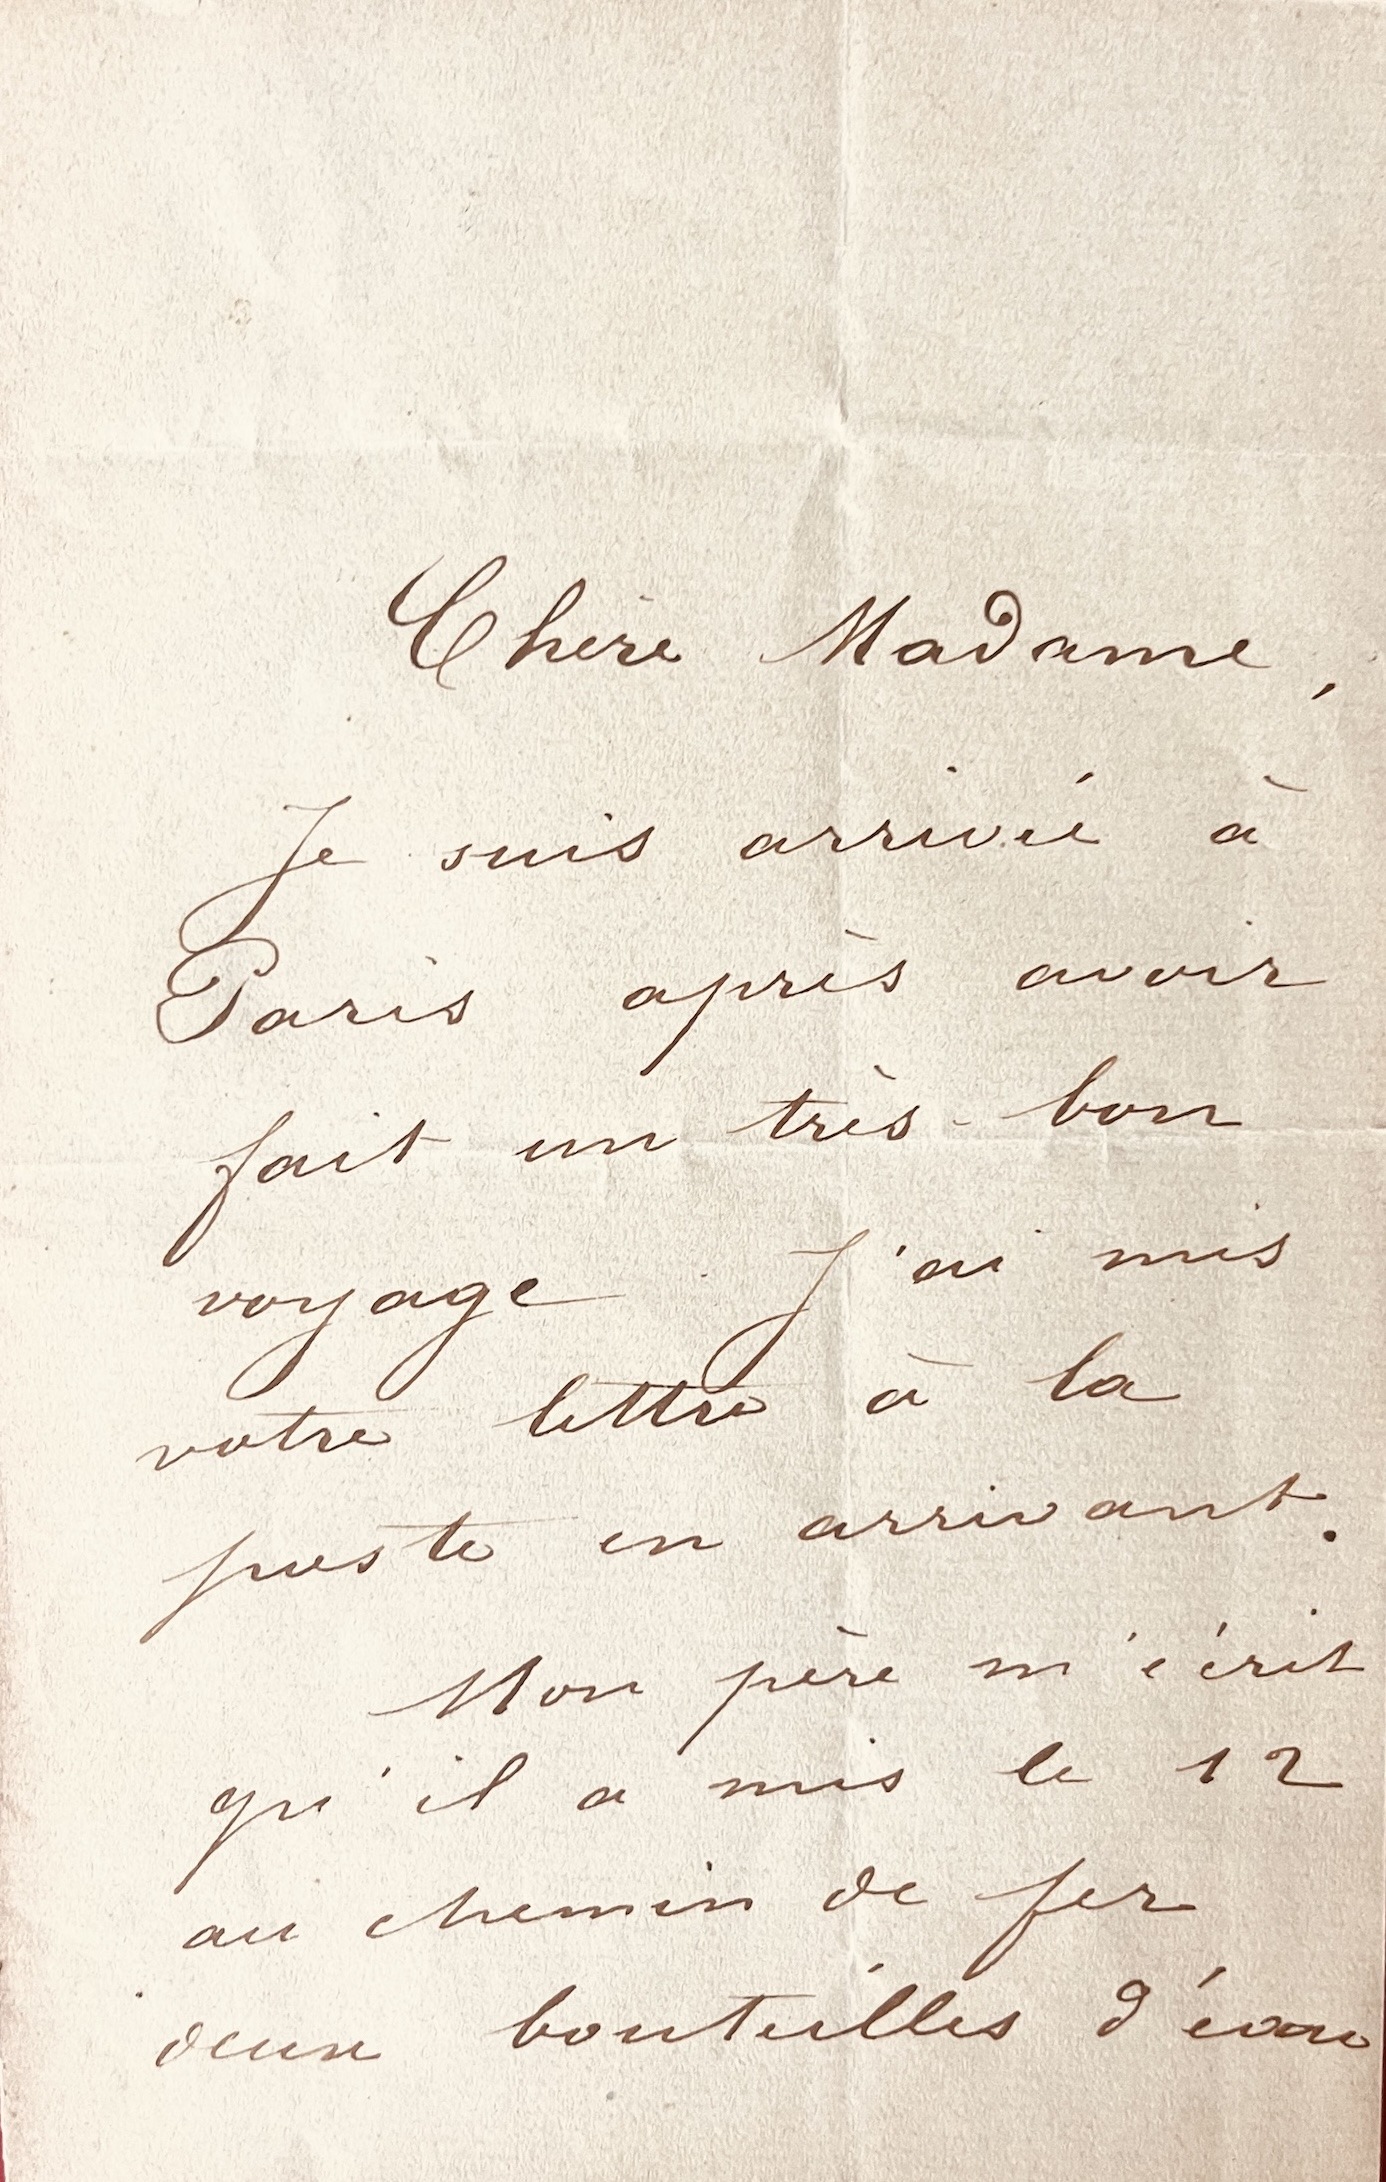 Chère Madame,
Je suis arrivée à
Paris après avoir
fait un très-bon
voyage J'ai mis
votre lettre à la
poste en arrivant.
Mon père m'écrit
qu'il a mis le 12
au chemin de fer
deux bouteilles d'eau